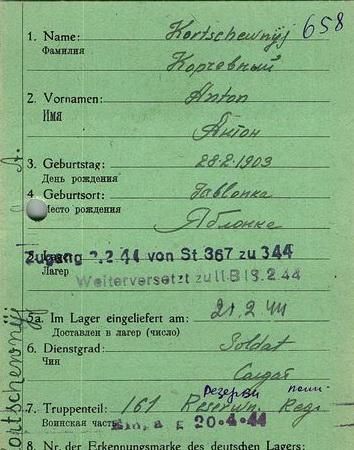 658
1. Name: Kortschewnyj
Фамилия Корчевный
2. Vornamen: Anton
Имя Антон
3. Geburtstag: 28.2.1903
День рождения
4. Geburtsort: Jablonka
Место рождения Яблонка
Zugang 2.2.44 von St. 367 zu 344
Лагерь
Weiterversetzt zu II B 18.2.44
5a. Im Lager eingeliefert am: 21.2.44
Доставлен в лагер (число)
6. Dienstgrad: Soldat
Чин Солдат
7. Truppenteil: 161 Reserwn. Regi
Воинская часть 20.4.44
8. Nr. der Erkennungsmarke des deutschen Lagers:
Kortschewnyj A.